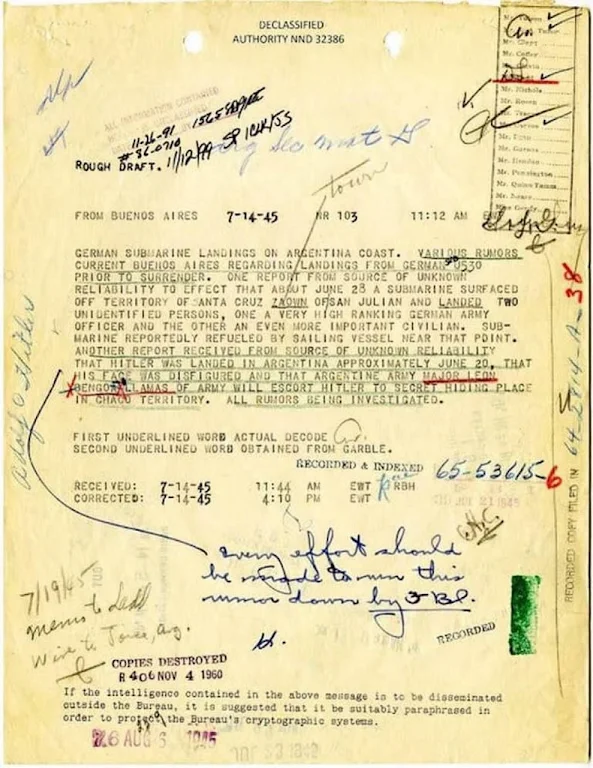 DECLASSIFIED
AUTHORITY NND 32386
ALL INFORMATION CONTAINED
11-26-91
#86-0710
11/12/99
ROUGH DRAFT.
Mr. Tolson
Mr. Clegg
Mr. Nichols
Mr. Rosen
Mr. Tracy
Mr. Egan
Mr. Gurnea
Mr. Hendon
Mr. Pennington
Mr. Quinn Tamm
Mr. Nease
Miss Gandy
Town
FROM BUENOS AIRES 7-14-45 NR 103 11:12 AM
GERMAN SUBMARINE LANDINGS ON ARGENTINA COAST. VARIOUS RUMORS
CURRENT BUENOS AIRES REGARDING LANDINGS FROM GERMAN 0530
PRIOR TO SURRENDER. ONE REPORT FROM SOURCE OF UNKNOWN
RELIABILITY TO EFFECT THAT ABOUT JUNE 28 A SUBMARINE SURFACED
OFF TERRITORY OF SANTA CRUZ ZAOWN OFSAN JULIAN AND LANDED TWO
UNIDENTIFIED PERSONS, ONE A VERY HIGH RANKING GERMAN ARMY
OFFICER AND THE OTHER AN EVEN MORE IMPORTANT CIVILIAN. SUB-
MARINE REPORTEDLY REFUELED BY SAILING VESSEL NEAR THAT POINT.
ANOTHER REPORT RECEIVED FROM SOURCE OF UNKNOWN RELIABILITY
THAT HITLER WAS LANDED IN ARGENTINA APPROXIMATELY JUNE 20, THAT
HIS FACE WAS DISFIGURED AND THAT ARGENTINE ARMY MAJOR LEON
BENGOA LLAMAS OF ARMY WILL ESCORT HITLER TO SECRET HIDING PLACE
IN CHACO TERRITORY. ALL RUMORS BEING INVESTIGATED.
Adolf Hitler
FIRST UNDERLINED WORD ACTUAL DECODE
SECOND UNDERLINED WORD OBTAINED FROM GARBLE.
RECORDED & INDEXED 65-53615-6
RECEIVED: 7-14-45 11:44 AM EWT RBH
CORRECTED: 7-14-45 4:10 PM EWT
RECORDED COPY FILED IN 64-2814-A-38
Every effort should
be made to run this
rumor down by FBI.
H.
RECORDED
7/19/45
Memo to Ladd
Wire to
COPIES DESTROYED
R 406 NOV 4 1960
If the intelligence contained in the above message is to be disseminated
outside the Bureau, it is suggested that it be suitably paraphrased in
order to protect the Bureau's cryptographic systems.